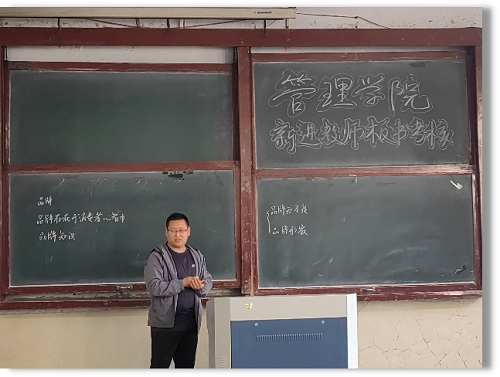 管理学院
新进教师板书考核
品牌
品牌存在于消费者心智中
品牌知识
品牌知名度
品牌形象